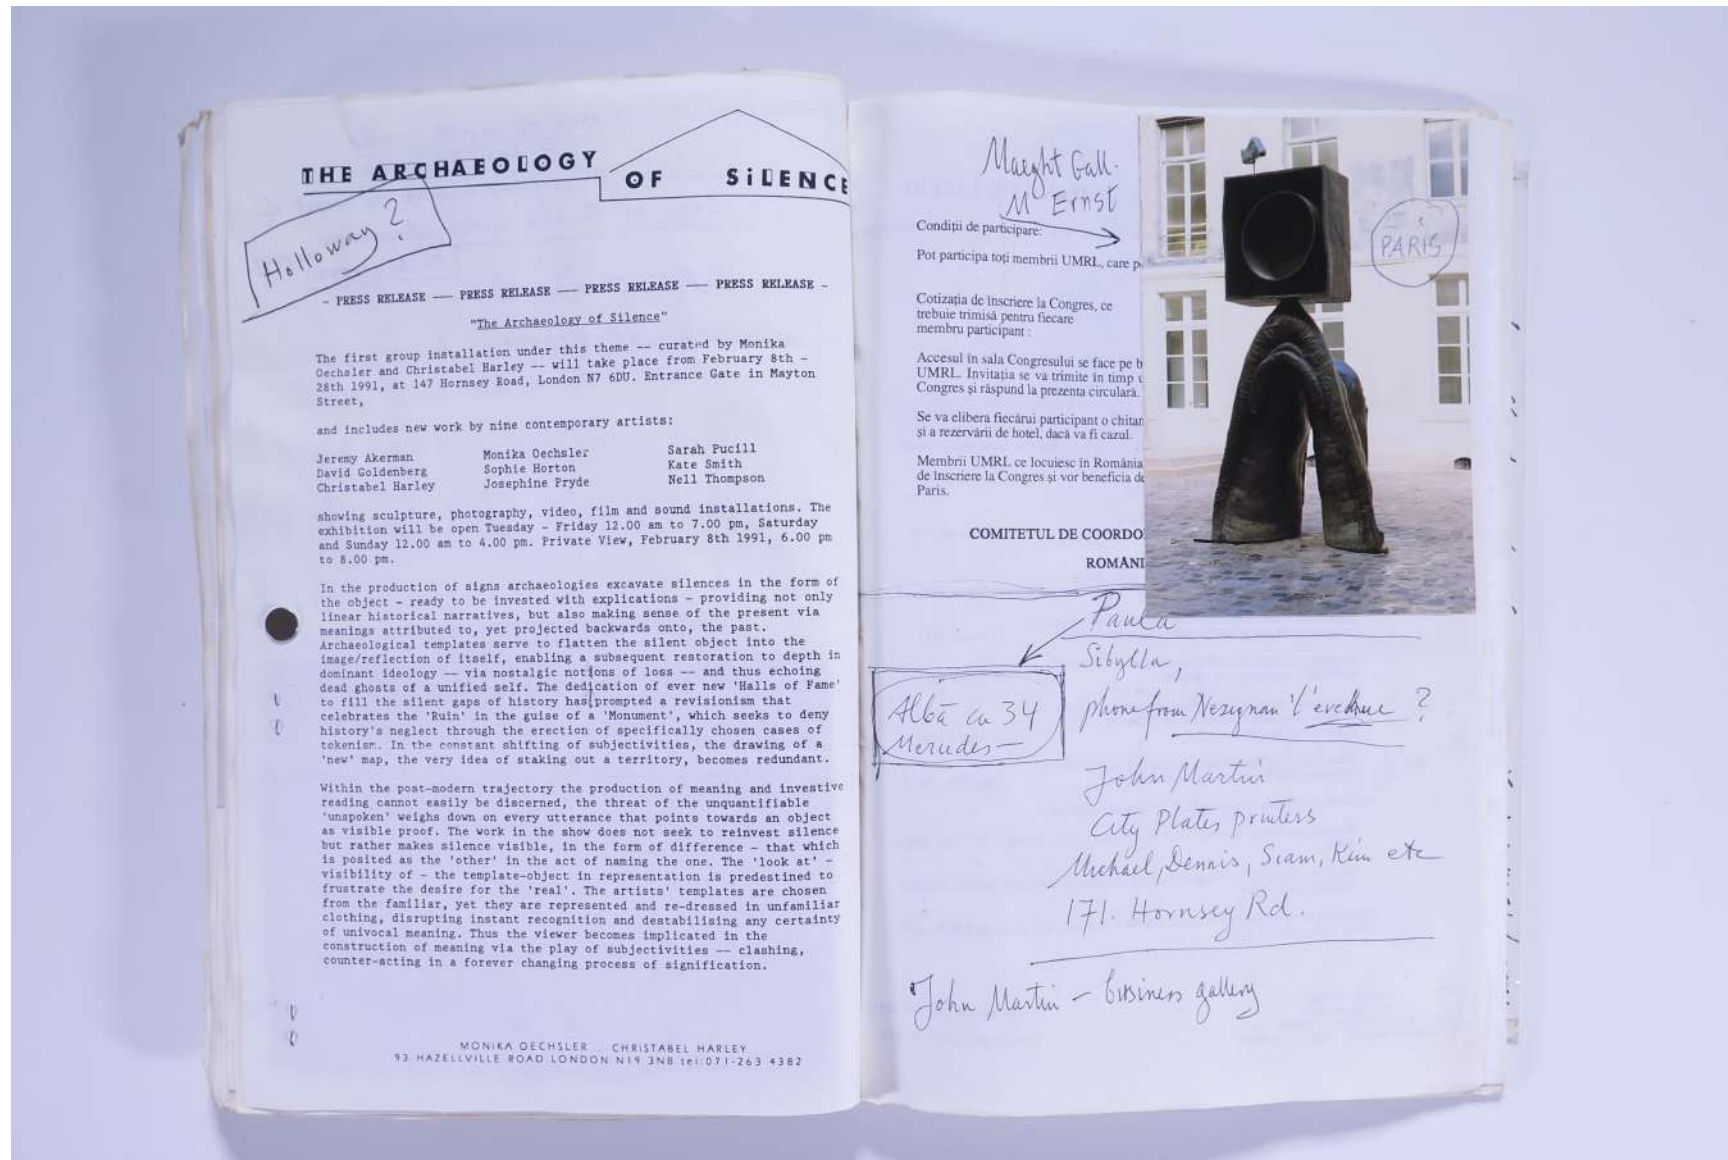 THE ARCHAEOLOGY OF SiLENCE
Holloway?
- PRESS RELEASE —— PRESS RELEASE —— PRESS RELEASE —— PRESS RELEASE -
"The Archaeology of Silence"
The first group installation under this theme -- curated by Monika
Oechsler and Christabel Harley -- will take place from February 8th -
28th 1991, at 147 Hornsey Road, London N7 6DU. Entrance Gate in Mayton
Street,
and includes new work by nine contemporary artists:
Jeremy Akerman Monika Oechsler Sarah Pucill
David Goldenberg Sophie Horton Kate Smith
Christabel Harley Josephine Pryde Nell Thompson
showing sculpture, photography, video, film and sound installations. The
exhibition will be open Tuesday - Friday 12.00 am to 7.00 pm, Saturday
and Sunday 12.00 am to 4.00 pm. Private View, February 8th 1991, 6.00 pm
to 8.00 pm.
In the production of signs archaeologies excavate silences in the form of
the object - ready to be invested with explications - providing not only
linear historical narratives, but also making sense of the present via
meanings attributed to, yet projected backwards onto, the past.
Archaeological templates serve to flatten the silent object into the
image/reflection of itself, enabling a subsequent restoration to depth in
dominant ideology -- via nostalgic notions of loss -- and thus echoing
dead ghosts of a unified self. The dedication of ever new 'Halls of Fame'
to fill the silent gaps of history has prompted a revisionism that
celebrates the 'Ruin' in the guise of a 'Monument', which seeks to deny
history's neglect through the erection of specifically chosen cases of
tokenism. In the constant shifting of subjectivities, the drawing of a
'new' map, the very idea of staking out a territory, becomes redundant.
Within the post-modern trajectory the production of meaning and investive
reading cannot easily be discerned, the threat of the unquantifiable
'unspoken' weighs down on every utterance that points towards an object
as visible proof. The work in the show does not seek to reinvest silence
but rather makes silence visible, in the form of difference - that which
is posited as the 'other' in the act of naming the one. The 'look at' -
visibility of - the template-object in representation is predestined to
frustrate the desire for the 'real'. The artists' templates are chosen
from the familiar, yet they are represented and re-dressed in unfamiliar
clothing, disrupting instant recognition and destabilising any certainty
of univocal meaning. Thus the viewer becomes implicated in the
construction of meaning via the play of subjectivities -- clashing,
counter-acting in a forever changing process of signification.
MONIKA OECHSLER CHRISTABEL HARLEY
93 HAZELLVILLE ROAD LONDON N19 3NB tel:071-263 4382
Maeght Gall.
M Ernst
PARIS
Condiții de participare:
Pot participa toți membrii UMRL, care p
Cotizația de înscriere la Congres, ce
trebuie trimisă pentru fiecare
membru participant :
Accesul în sala Congresului se face pe b
UMRL. Invitația se va trimite în timp
Congres și răspund la prezenta circulară.
Se va elibera fiecărui participant o chitan
și a rezervării de hotel, dacă va fi cazul.
Membrii UMRL ce locuiesc în România
de înscriere la Congres și vor beneficia de
Paris.
COMITETUL DE COORDO
ROMÂNI
Paula
Sibylla,
phone from Nezignan 'l' ?
Albă cu 34
Mercedes—
John Martin
City Plates printers
Michael, Dennis, Siam, Kim etc
171. Hornsey Rd.
John Martin – business gallery